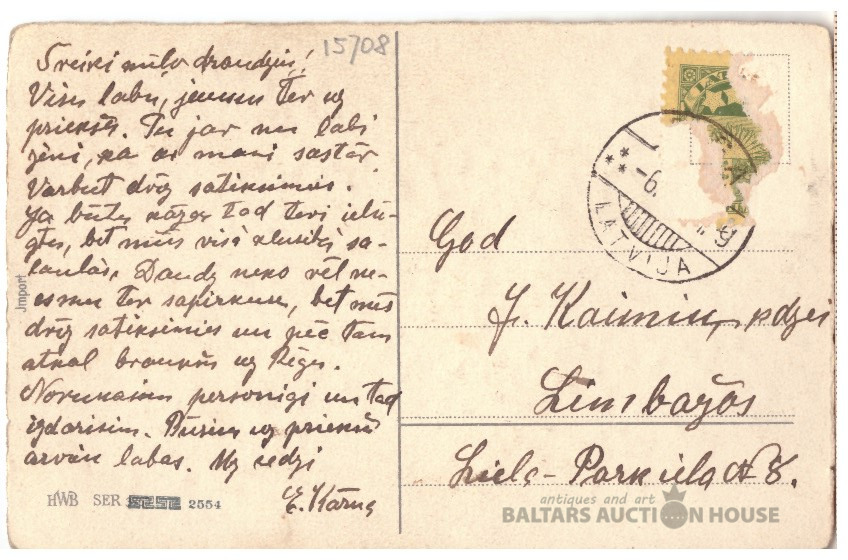 15708
Sveiki mīlo draudziņ!
Visu labu, jaunu tev uz
priekšu. Tu jau nu labi
zini, ka as mani
Varbūt drīz satiksimies.
Ja būtu kāzas tad tevi ielū-
gtu, bet mūs visi klusībā sa-
laulās. Daudz neko vēl ne-
esmu tev sapirkuse, bet mēs
drīz satiksimies un pēc tam
atkal brauksim uz Rīgu.
Norunāsim personīgi un tad
izdarīsim. Būsim uz priekšu
arvien labas. Uz redzi
E. Kārna
God
J. Kaimiņ, kdzei
Limbažos
Liela-Parkiela № 8.
LATVIJA
-6.
Import
HWB SER 2554
antiques and art
BALTARS AUCTION HOUSE